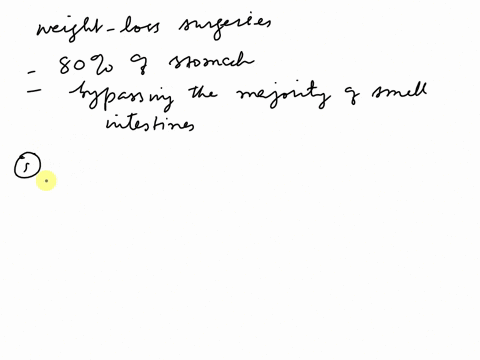 weight-loss surgeries
= 80% of stomach
= bypassing the majority of small
intestines